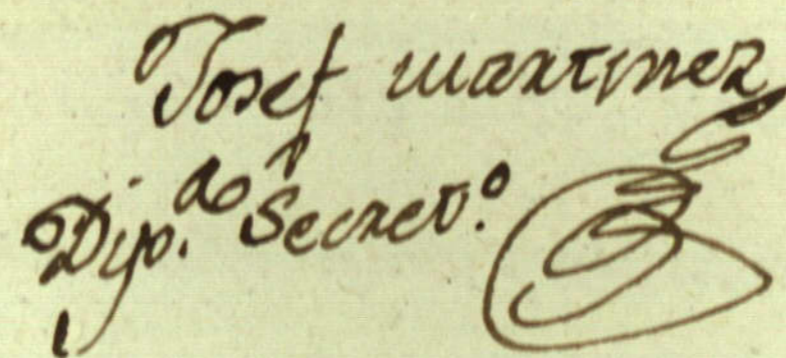 Josef martinez
Dip.do Secret.o